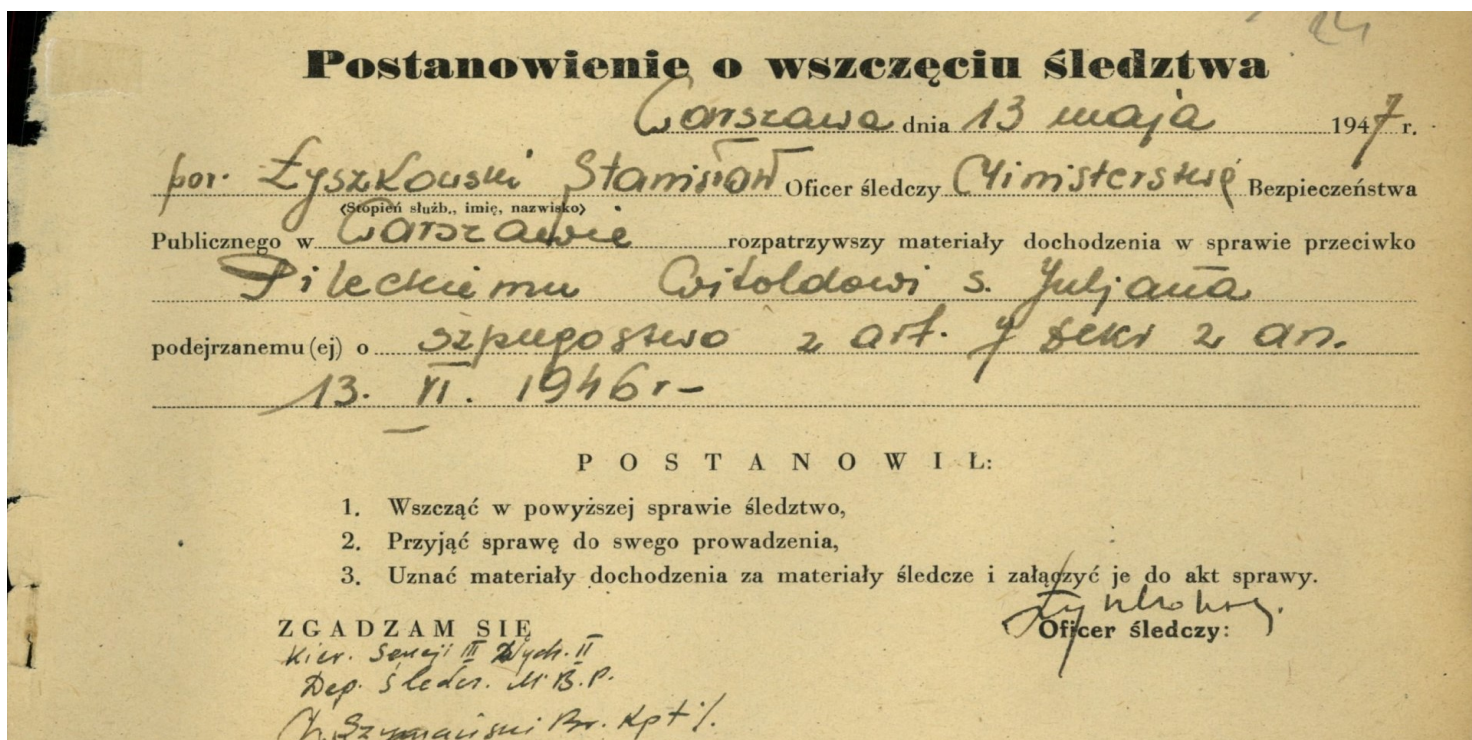 24
Postanowienie o wszczęciu śledztwa
Warszawa dnia 13 maja 1947 r.
por. Łyszkowski Stanisław Oficer śledczy Ministerstwie Bezpieczeństwa
(Stopień służb., imię, nazwisko)
Publicznego w Warszawie rozpatrzywszy materiały dochodzenia w sprawie przeciwko
Pileckiemu Witoldowi s. Juljana
podejrzanemu (ej) o szpiegostwo z art. 7 dekr z dn.
13. VI. 1946 r-
POSTANOWIŁ:
1. Wszcząć w powyższej sprawie śledztwo,
2. Przyjąć sprawę do swego prowadzenia,
3. Uznać materiały dochodzenia za materiały śledcze i załączyć je do akt sprawy.
ZGADZAM SIĘ
Oficer śledczy:
Kier. Sekcji III Wydz. II
Dep. Śledcz. M.B.P.
Szymański Br. Kpt